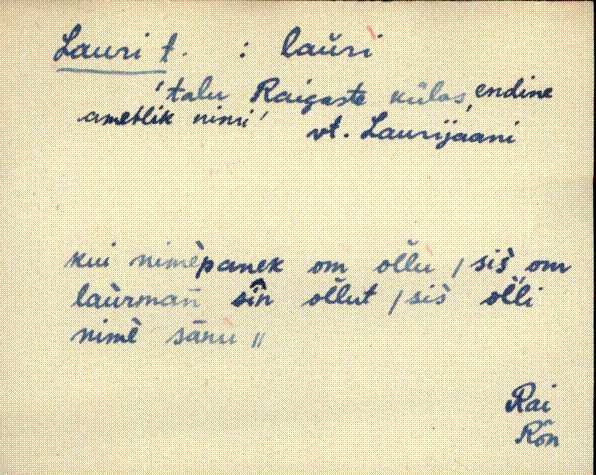 Lauri t. : lauri
'talu Raigaste külas, endine
ametlik nimi' vt. Laurijaani
kui nimèpanek om ollu / sis̀ om
laùrman̄ sîn ollut / sis̀ olli
nimè sānù //
Rai
Rõn